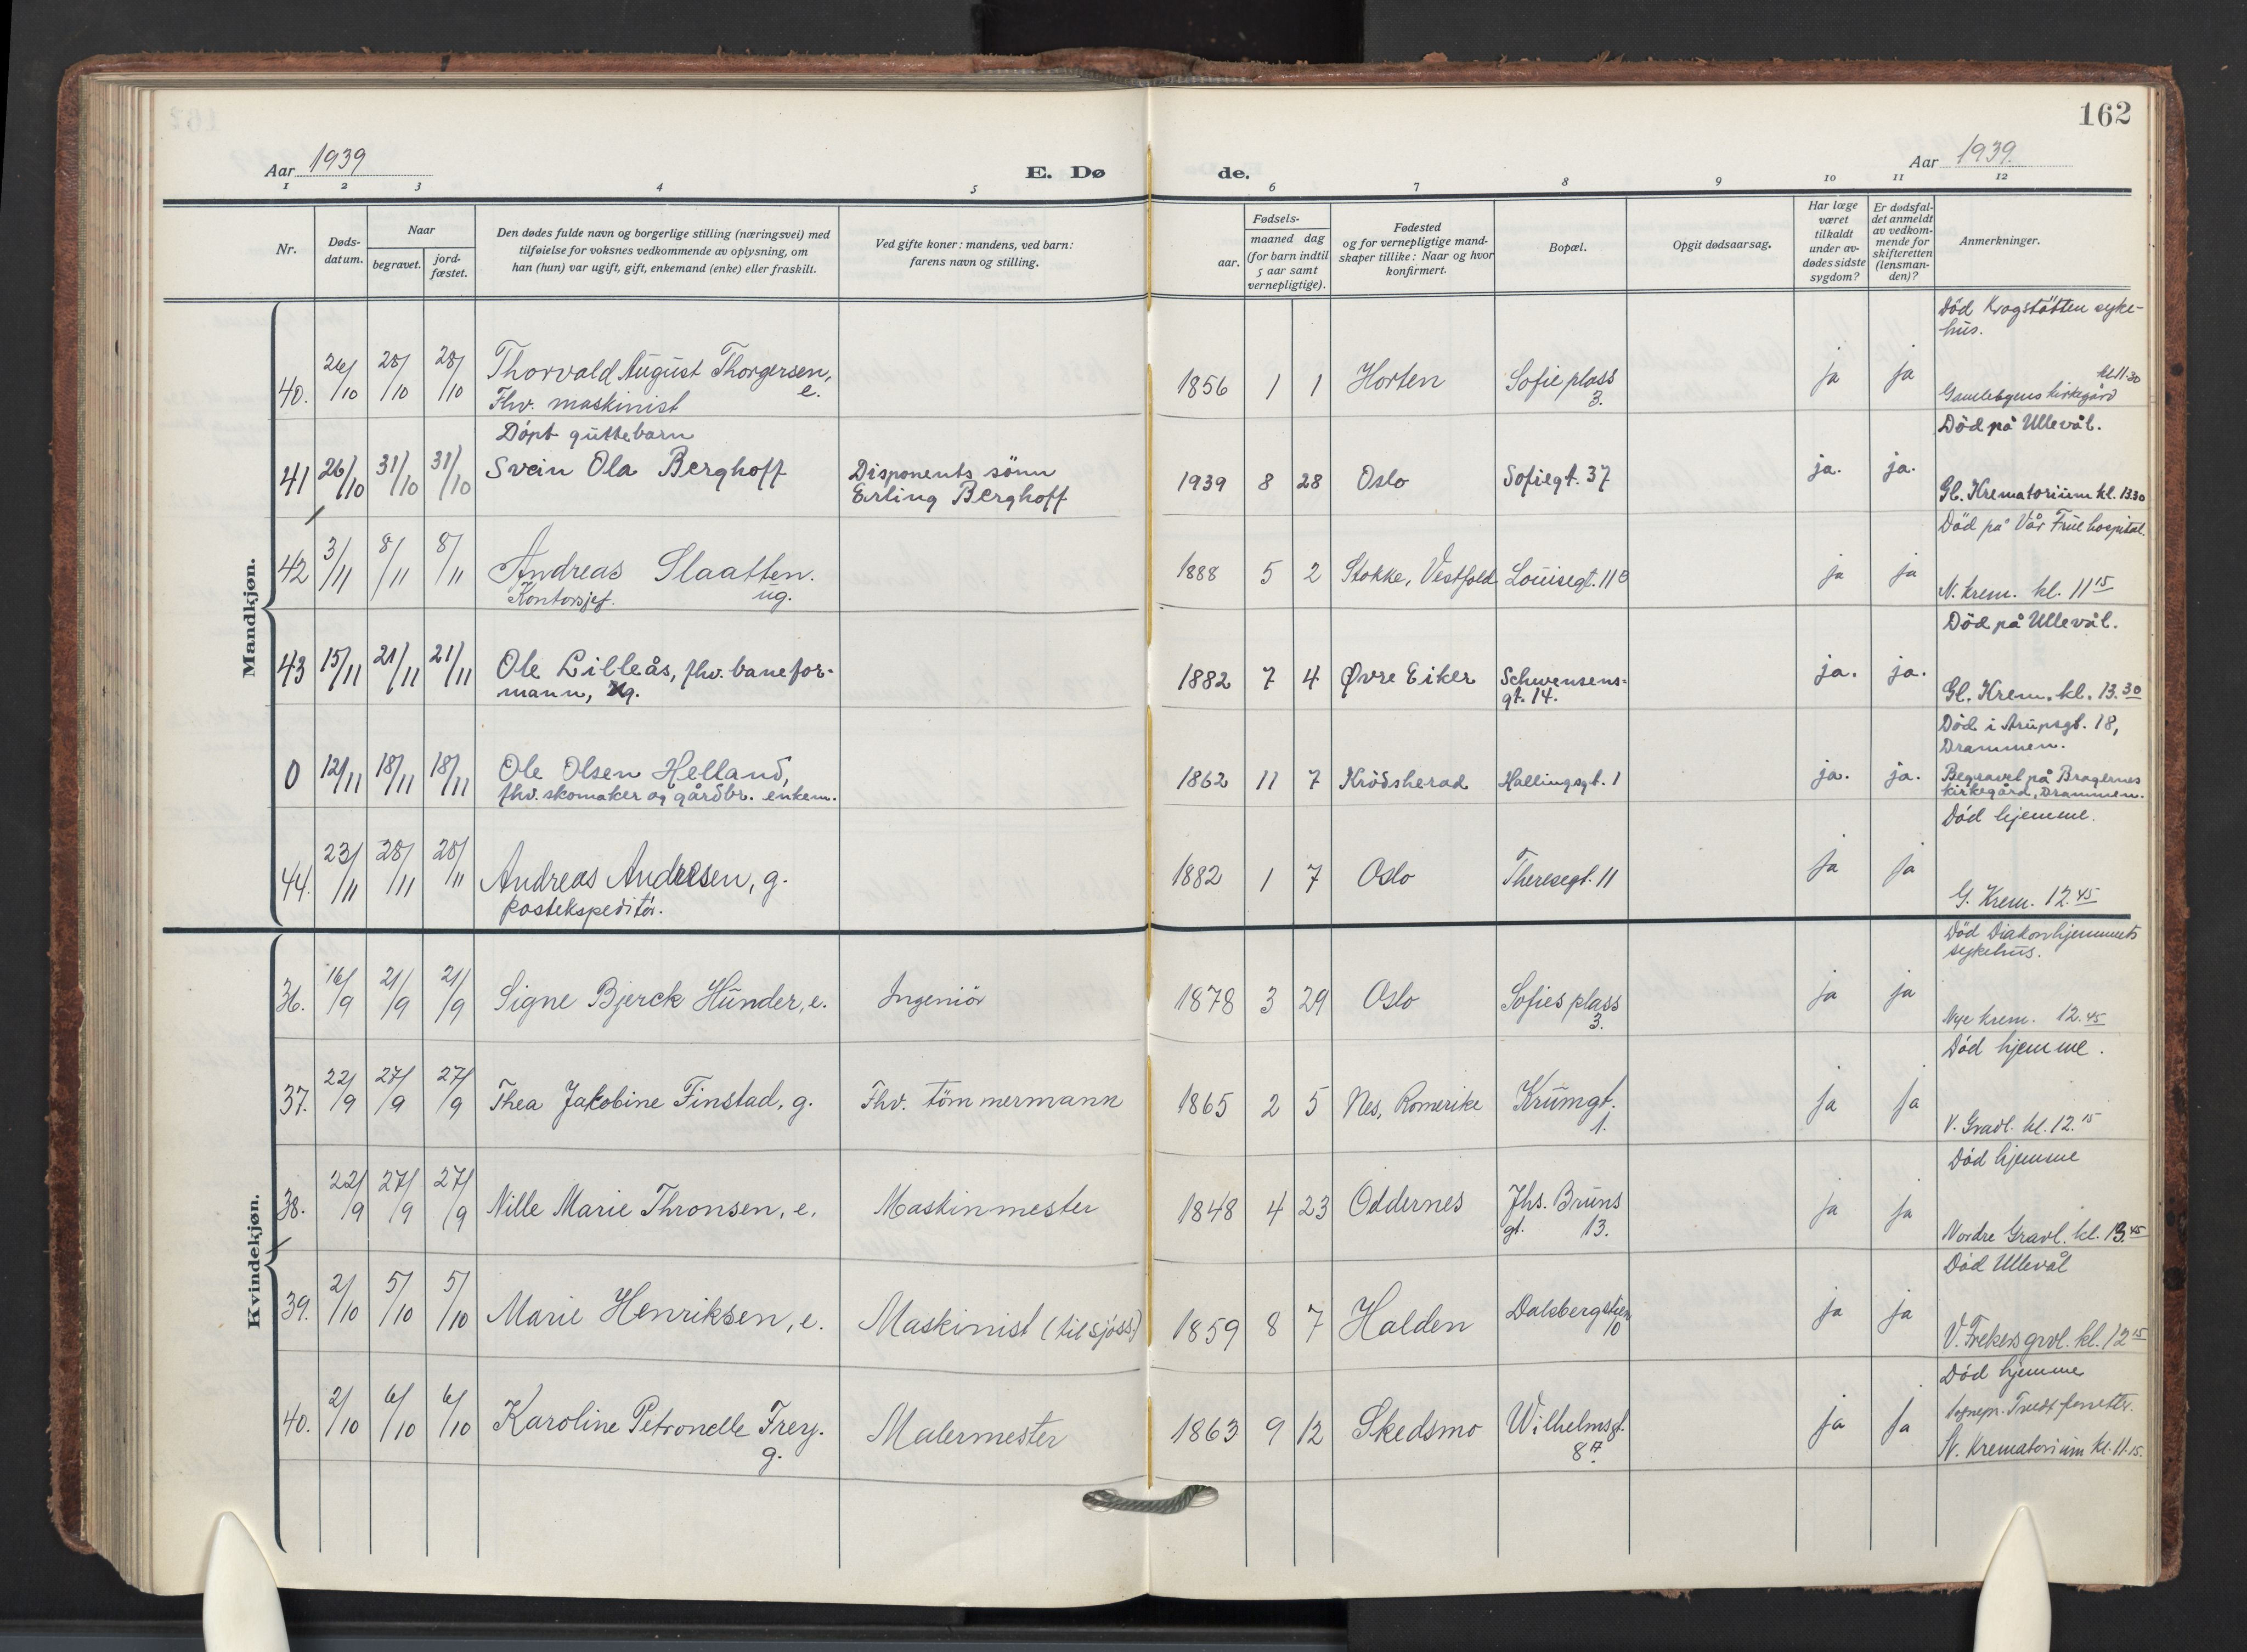 162
Aar 1939
E. Dø
de.
Aar 1939.
1 2 3 4 5 6 7 8 9 10 11 12
Nr.
Døds-
datum.
Naar
begravet.
jord-
fæstet.
Den dødes fulde navn og borgerlige stilling (næringsvei) med
tilføielse for voksnes vedkommende av oplysning, om
han (hun) var ugift, gift, enkemand (enke) eller fraskilt.
Ved gifte koner: mandens, ved barn:
farens navn og stilling.
Fødsels-
aar.
maaned dag
(for barn indtil
5 aar samt
vernepligtige).
Fødested
og for vernepligtige mand-
skaper tillike: Naar og hvor
konfirmert.
Bopæl.
Opgit dødsaarsag.
Har læge
været
tilkaldt
under av-
dødes sidste
sygdom?
Er dødsfal-
det anmeldt
av vedkom-
mende for
skifteretten
(lensman-
den)?
Anmerkninger.
Mandkjøn.
Død Krogstøtten syke-
hus.
40. 26/10 28/10 28/10 Thorvald August Thorgersen, e. 1856 1 1 Horten Sofie plass 3. ja ja kl 11.30
Fhv. maskinist Gamlebyens kirkegård
Døpt guttebarn Død på Ullevål.
41 26/10 31/10 31/10 Svein Ola Berghoff Disponents sønn 1939 8 28 Oslo Sofiegt. 37 ja. ja.
Erling Berghoff Gl. Krematorium kl. 13.30
Død på Vår Frue hospital.
42 3/11 8/11 8/11 Andreas Slaatten. 1888 5 2 Stokke, Vestfold Louisegt. 11 ja ja
Kontorsjef. ug. N. krem. kl. 11 15
Død på Ullevål.
43 15/11 21/11 21/11 Ole Lilleås, fhv. banefor- 1882 7 4 Øvre Eiker Schwensens- ja. ja.
mann, g. gt. 14. Gl. Krem. kl. 13.30
Død i Arupsgt. 18,
Drammen.
0 12/11 18/11 18/11 Ole Olsen Helland, 1862 11 7 Krødsherad Hallingsgt. 1 ja. ja. Begravet på Bragernes
fhv. skomaker og gårdbr. enkem. kirkegård, Drammen.
Død hjemme.
44. 23/11 28/11 28/11 Andreas Andresen, g. 1882 1 7 Oslo Theresegt. 11 ja ja
postekspeditør. G. Krem. 12.45
Kvindekjøn.
Død Diakonhjemmets
sykehus.
36. 16/9 21/9 21/9 Signe Bjerck Hunder, e. Ingeniør 1878 3 29 Oslo Sofies plass 3. ja ja
Nye krem. 12.45
Død hjemme.
37. 22/9 27/9 27/9 Thea Jakobine Finstad, g. Fhv. tømmermann 1865 2 5 Nes, Romerike Krumgt. 1. ja ja
V. Gravl. kl. 12.15
Død hjemme
38. 22/9 27/9 27/9 Nille Marie Thronsen, e. Maskinmester 1848 4 23 Oddernes Jhs. Bruns ja ja
gt. 13. Nordre Gravl. kl. 13.45
Død Ullevål
39. 2/10 5/10 5/10 Marie Henriksen, e. Maskinist (til sjøss) 1859 8 7 Halden Dalsbergstien 10 ja ja
V. Frekers grvl. kl. 12 15
Død hjemme
40. 2/10 6/10 6/10 Karoline Petronelle Frey. Malermester 1863 9 12 Skedsmo Wilhelmsgt. ja ja
g. 8 A. N. Krematorium kl. 11.15.